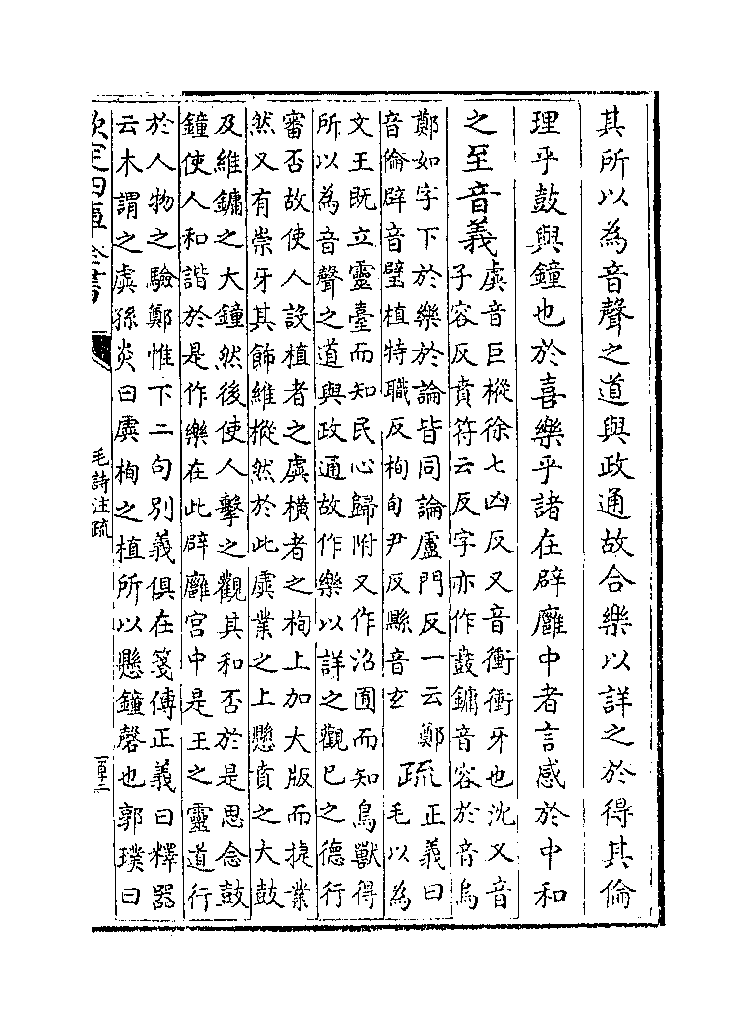 其所以為音聲之道與政通故合樂以詳之於得其倫
理乎鼓與鐘也於喜樂乎諸在辟廱中者言感於中和
之至音義
虡音巨樅徐七凶反又音衝衝牙也沈又音
子容反賁符云反字亦作鼖鏞音容於音烏
鄭如字下於樂於論皆同論盧門反一云鄭
音倫辟音璧植特職反栒旬尹反縣音玄
疏
正義曰
毛以為
文王既立靈臺而知民心歸附又作沼囿而知鳥獸得
所以為音聲之道與政通故作樂以詳之觀己之德行
審否故使人設植者之虡横者之栒上加大版而捷業
然又有崇牙其飾維樅然於此虡業之上懸賁之大鼓
及維鏞之大鐘然後使人擊之觀其和否於是思念鼓
鐘使人和諧於是作樂在此辟廱宫中是王之靈道行
於人物之驗鄭惟下二句别義俱在箋傳正義曰釋器
云木謂之虡孫炎曰虡栒之植所以懸鐘磬也郭璞曰
欽定四庫全書
毛詩注疏